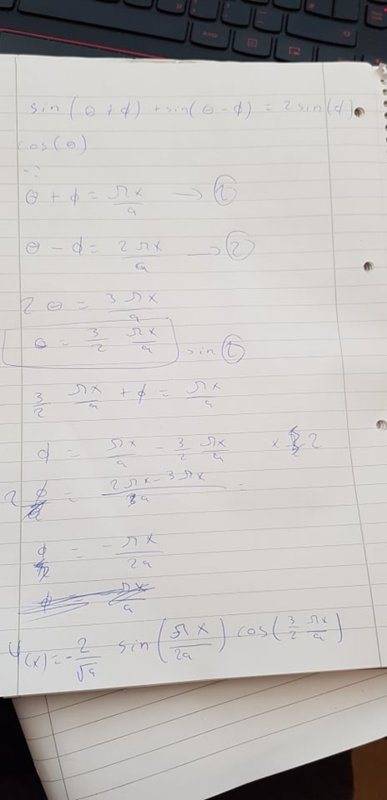 sin(θ+ϕ) + sin(θ-ϕ) = 2sin(ϕ)
cos(θ)
∵
θ + ϕ = πx/a → ①
θ - ϕ = 2πx/a → ②
2θ = 3πx/a
θ = 3/2 πx/a sin ①
3/2 πx/a + ϕ = πx/a
ϕ = πx/a - 3/2 πx/a × 2
2ϕ = 2πx-3πx/a =
ϕ = -πx/2a
πx/a
Ψ(x) = -2/√a sin(πx/2a) cos(3/2 πx/a)